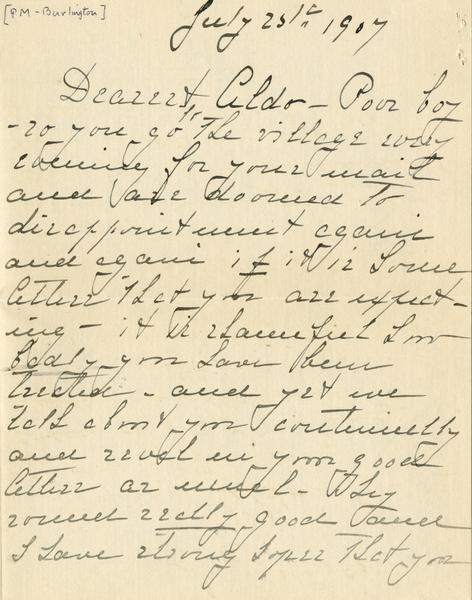 [PM - Burlington]
July 21st 1907
Dearest Aldo - Poor boy
- so you go to the village every
evening for your mail
and are doomed to
disappointment again
and again if it is home
letters that you are expect-
ing - it is shameful how
badly you have been
treated - and yet we
talk about you continually
and revel in your good
letters as usual - They
sound really good and
I have strong hopes that you